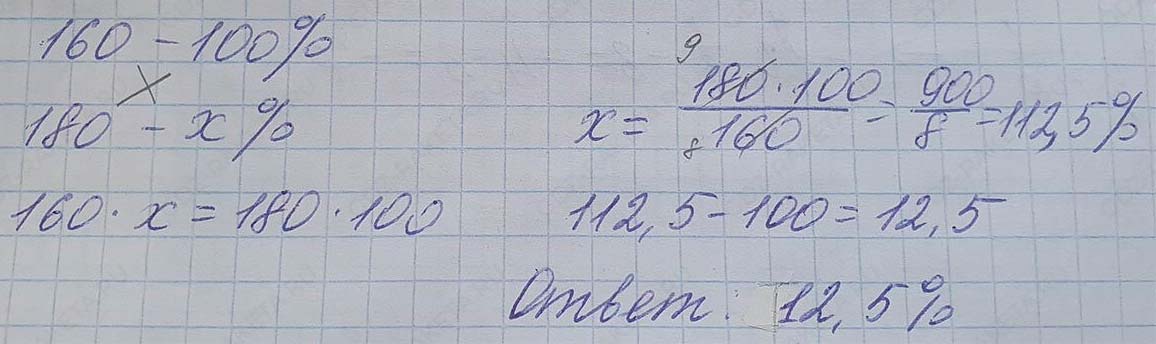 160 - 100%
180 - x%
160 · x = 180 · 100
9
x = 180 · 100 / 160 = 900 / 8 = 112,5%
8
112,5 - 100 = 12,5
Ответ: 12,5%